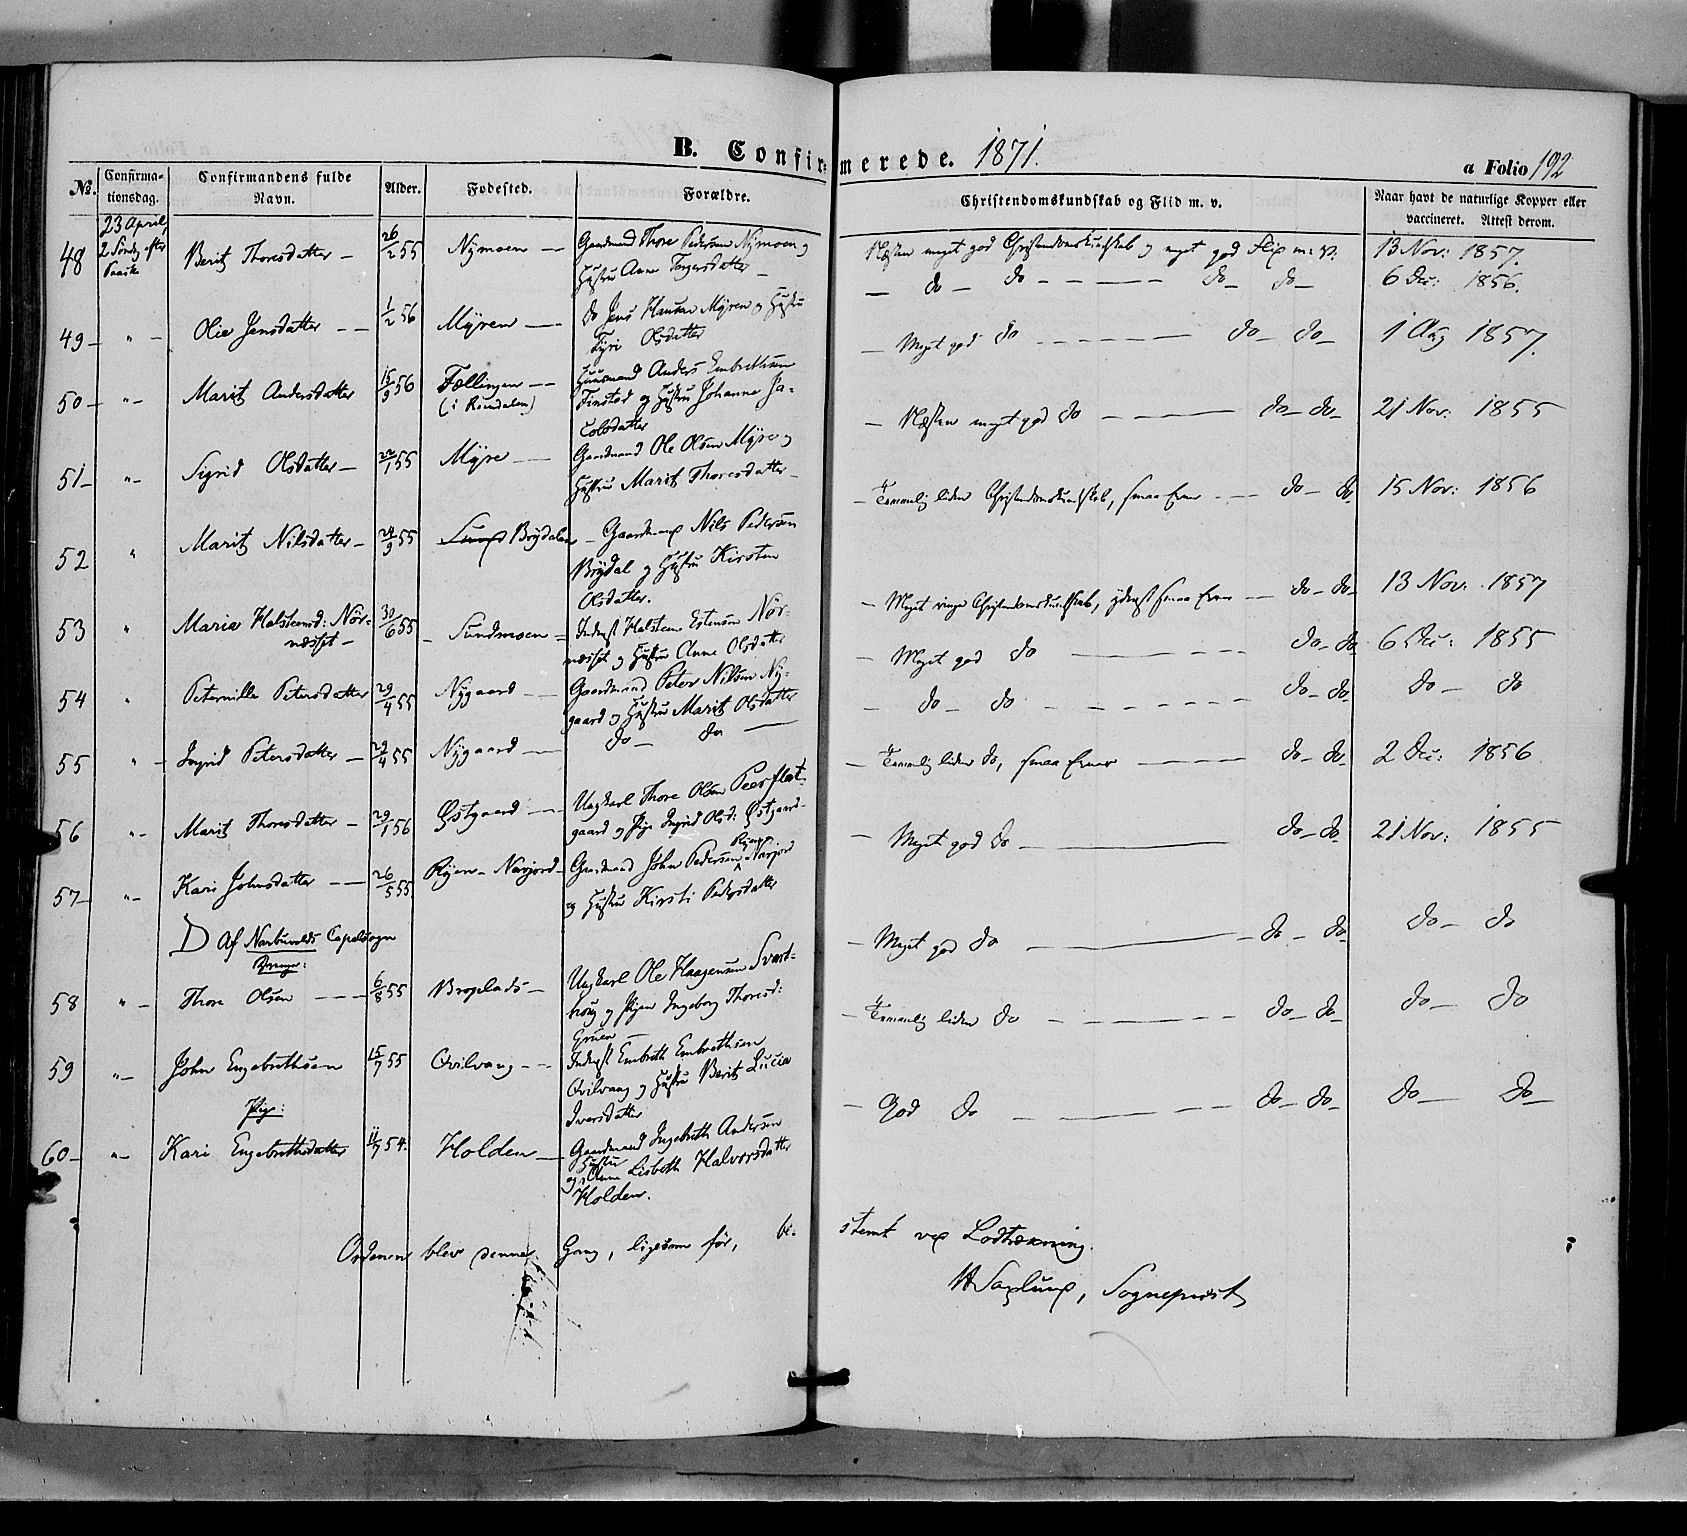 B. Confirmerede. 1871.
a Folio 192
No.
Confirmationsdag.
Confirmandens fulde Navn.
Alder.
Fødested.
Forældre.
Christendomskundskab og Flid m. v.
Naar havt de naturlige Kopper eller vaccineret. Attest derom.
23 April, 2 Søndag efter Paaske
48 Berit Thoresdatter — 26/2 55 Nymoen — Gaardmand Thore Pedersen Nymoen og
Hustru Anne Tørgersdatter —
Næsten meget god Christendomskundskab og meget god Flid m: v: 13 Nov: 1857.
49 — " — Olie Jensdatter — — 1/2 56 Myren — do Jens Hansen Myren og Hustru
Tyri Olsdatter
— do — do — — — — do — do — 6 Dec: 1856.
50 — " — Marit Andersdatter 15/9 56 Fællingen — — Huusmand Anders Embrethsen
(i Rendalen) Finstad og Hustru Johanne Ja-
cobsdatter
— Meget god do — — — — do — do — 1 Aug 1857.
51 — " — Sigrid Olsdatter — 22/1 55 Myre — — Gaardmand Ole Olsen Myre og
Hustru Marit Thoresdatter —
— Næsten meget god do — — — — do — do — 21 Nov: 1855
52 " Marit Nilsdatter — 24/9 55 Brydalen — Gaardmand Nils Pedersen
Brydal og Hustru Kirsten
Olsdatter.
— Temmelig liden Christendomskundskab, smaa Evner — — do — do 15 Nov: 1856
53 " Maria Halsteensd: Nör- 30/6 55 — Sundmoen — Inderst Halsteen Estensen Nör-
næsset — næsset og Hustru Anne Olsdatter
— Meget ringe Christendomskundskab, yderst smaa Evner — do — do — 13 Nov: 1857
54 " Peternille Petersdatter 29/4 55 Nygaard — — Gaardmand Peter Nilsen Ny-
gaard og Hustru Marit Olsdatter
— Meget god do — — — do — do 6 Dec: 1855
55 " — Ingrid Petersdatter — 29/4 55 Nygaard — — do — do —
— do — do — — — — do — do — do — do
56 " — Marit Thoresdatter — 29/1 56 Østgaard — — Ungkarl Thore Olsen Peersflat-
gaard og Pige Ingrid Olsd: Østgaard —
— Temmelig liden do, smaa Evner — — — do — do — 2 Dec: 1856
57 — " — Kari Johnsdatter — — 26/5 55 Røyen — Narjord — Gaardmand John Pedersen Røyen Narjord
og Hustru Kirsti Pedersdatter
— Meget god do — — do — do — 21 Nov: 1855
D Af Narbuvolds Capelsogn
Drenge:
58 " — Thore Olsen — — — 6/8 55 Broplads — Ungkarl Ole Haagensen Svart-
og Pigen Ingeborg Thoresd:
Gruen —
— Meget god do — — do — do — do — do
59 " — John Engebrethsen 15/7 55 Qvilvang — — Inderst Embreth Embrethsen
Qvilvang og Hustru Berit Lucia
Iversdatter
— Temmelig liden do — — — do — do — do — do
Pige:
60 — " — Kari Engebrethsdatter 11/7 54. Holden — Gaardmand Ingebreth Andersen
og Hustru Anne Lisbeth Halvorsdatter
Holden.
— God do — — — do — do — do — do —
Ordenen blev denne Gang, ligesom før, be- stemt ved Lodtrækning.
Sognepræst